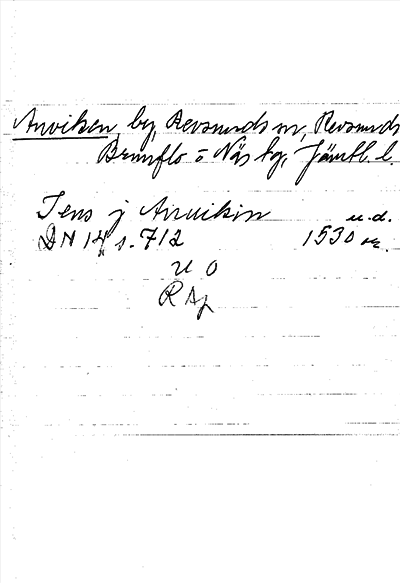 Anviken, by, Revsunds sn, Revsunds
Brunflo o Näs tg, Jämtl. l.
Jens j Anuikin u.d.
DN 14 s. 712 1530 
U O
R Aj